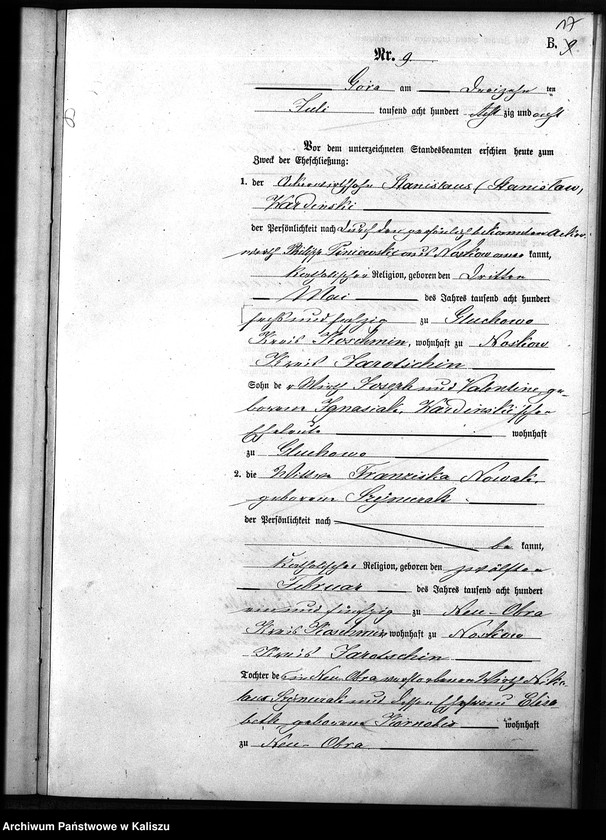 17
B.
Nr. 9
Góra am Dreizehn ten
Juli tausend acht hundert acht zig und acht
Vor dem unterzeichneten Standesbeamten erschien heute zum
Zweck der Eheschließung:
1. der Ackerwirthssohn Stanislaus (Stanisław)
der Persönlichkeit nach durch den persönlich bekannten Acker-
wirth Philipp aus Noskow aner kannt,
katholischer Religion, geboren den Dritten
Mai des Jahres tausend acht hundert
sechs und sechzig zu Gluchowo
Kreis Koschmin, wohnhaft zu Noskow
Kreis Jarotschin
Sohn der Wirth Joseph und Valentine, ge-
borene Ignasiak,
Eheleute wohnhaft
zu Gluchowo
2. die Wittwe Franziska Nowak,
geborene Szymczak
der Persönlichkeit nach
be kannt,
katholischer Religion, geboren den zwölften
Februar des Jahres tausend acht hundert
ein und fünfzig zu Neu-Obra
Kreis Koschmin wohnhaft zu Noskow
Kreis Jarotschin
Tochter des in Neu Obra verstorbenen Wirth Niko-
laus Szymczak und dessen Ehefrau Elisa-
beth, geborene wohnhaft
zu Neu-Obra
Archiwum Państwowe w Kaliszu